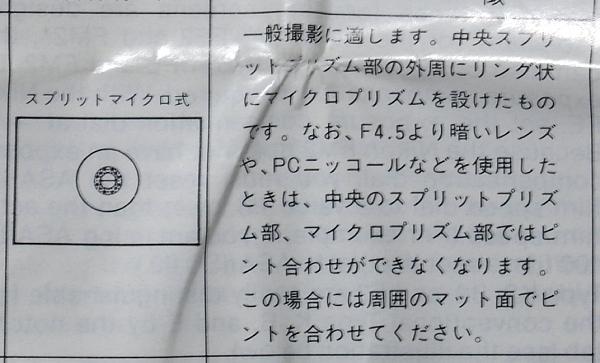 スプリットマイクロ式
一般撮影に適します。中央スプリ
ットプリズム部の外周にリング状
にマイクロプリズムを設けたもの
です。なお、F4.5より暗いレンズ
や、PCニッコールなどを使用した
ときは、中央のスプリットプリズ
ム部、マイクロプリズム部ではピ
ント合わせができなくなります。
この場合には周囲のマット面でピ
ントを合わせてください。